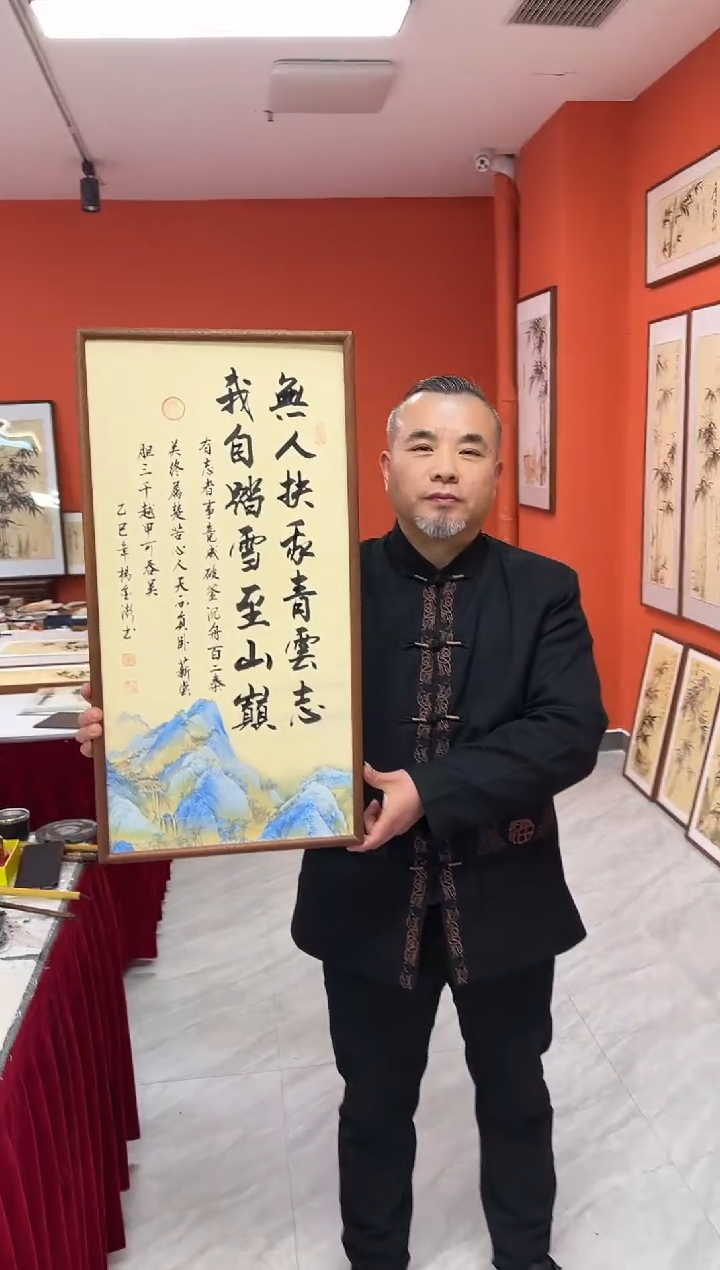 無人扶我青雲志
我自踏雪至山巔
有志者事竟成破釜沉舟百二秦
关终属楚苦心人天不負卧薪尝
胆三千越甲可吞吴
乙巳年楊金书